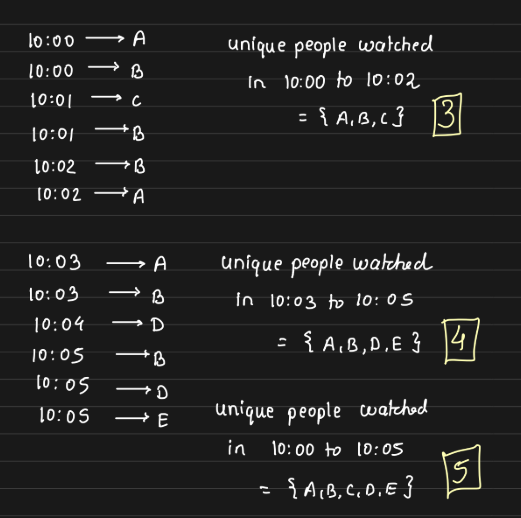 10:00 → A
10:00 → B
10:01 → C
10:01 → B
10:02 → B
10:02 → A
unique people watched
in 10:00 to 10:02
= { A,B,C } 3
10:03 → A
10:03 → B
10:04 → D
10:05 → B
10:05 → D
10:05 → E
unique people watched
in 10:03 to 10:05
= { A,B,D,E } 4
unique people watched
in 10:00 to 10:05
= { A,B,C,D,E } 5